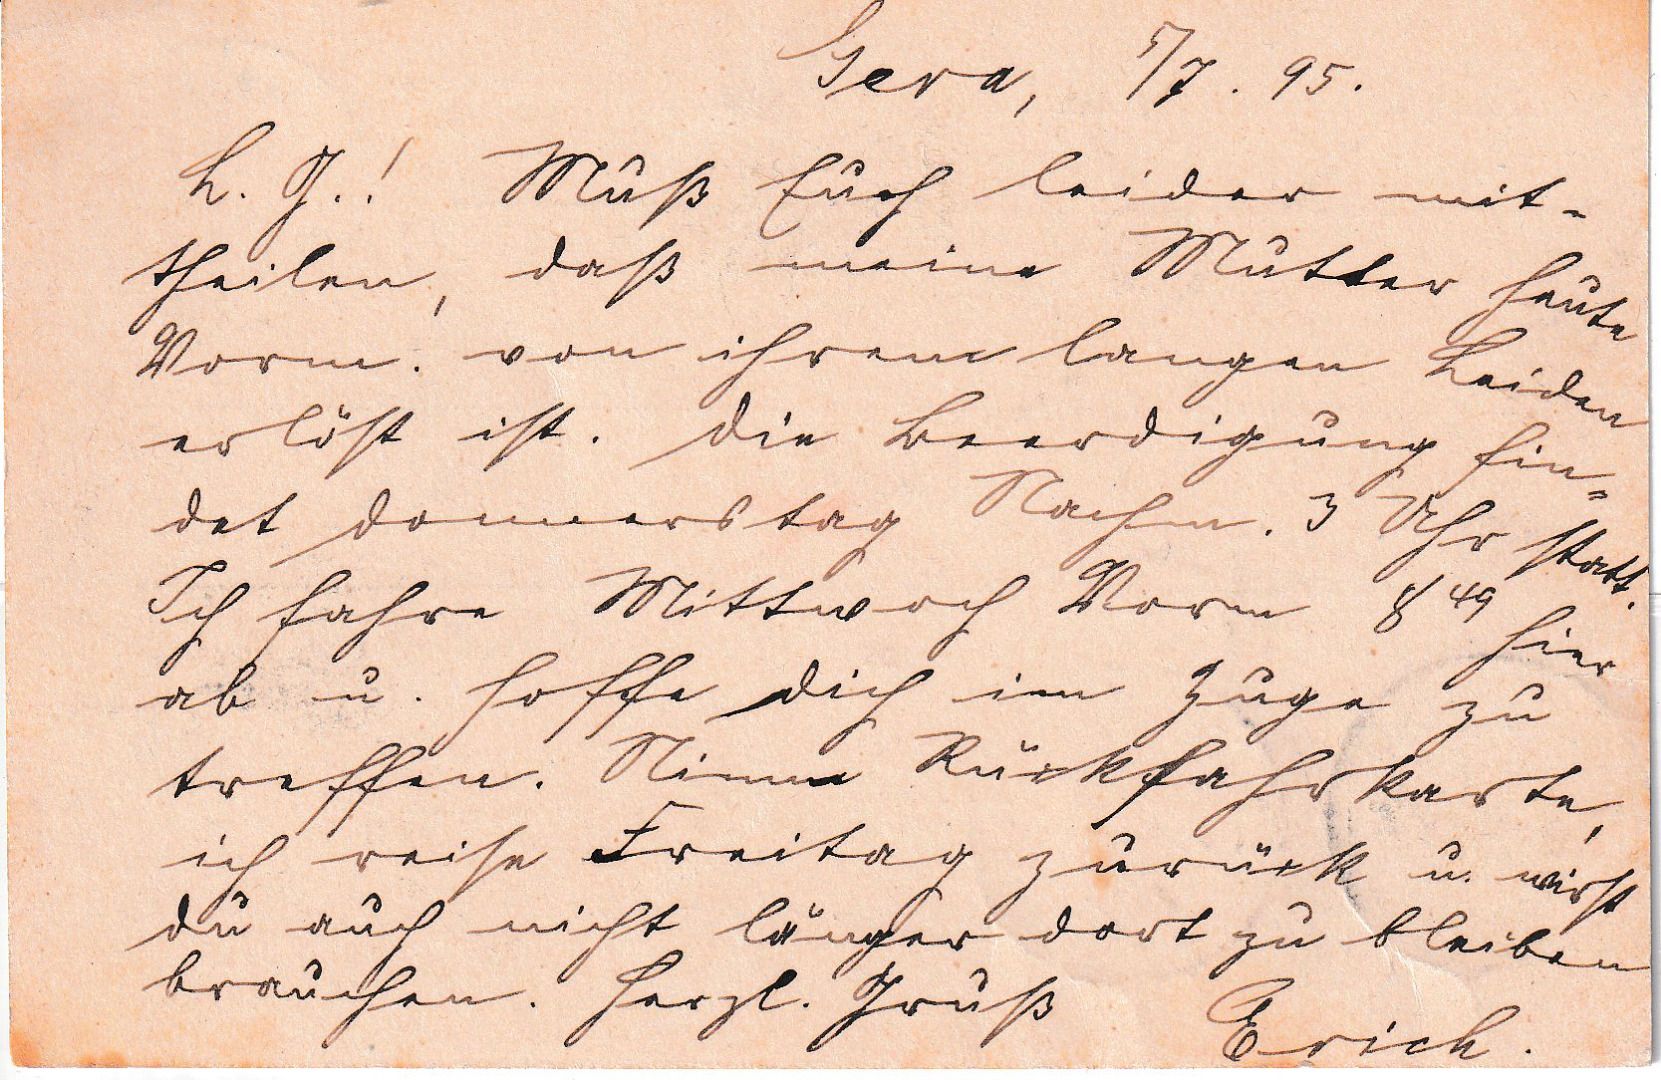 Gera, 5/7. 95.
L. G.! Muß Euch leider mit-
theilen, daß meine Mutter heute
Vorm. von ihrem langen Leiden
erlöst ist. Die Beerdigung fin-
det Donnerstag Nachm. 3 Uhr statt.
Ich fahre Mittwoch Vorm 8 49 hier
ab u. hoffe Dich im Zuge zu
treffen. Nimm Rückfahrkarte,
ich reise Freitag zurück u. wirst
Du auch nicht länger dort zu bleiben
brauchen. Herzl. Gruß Erich.